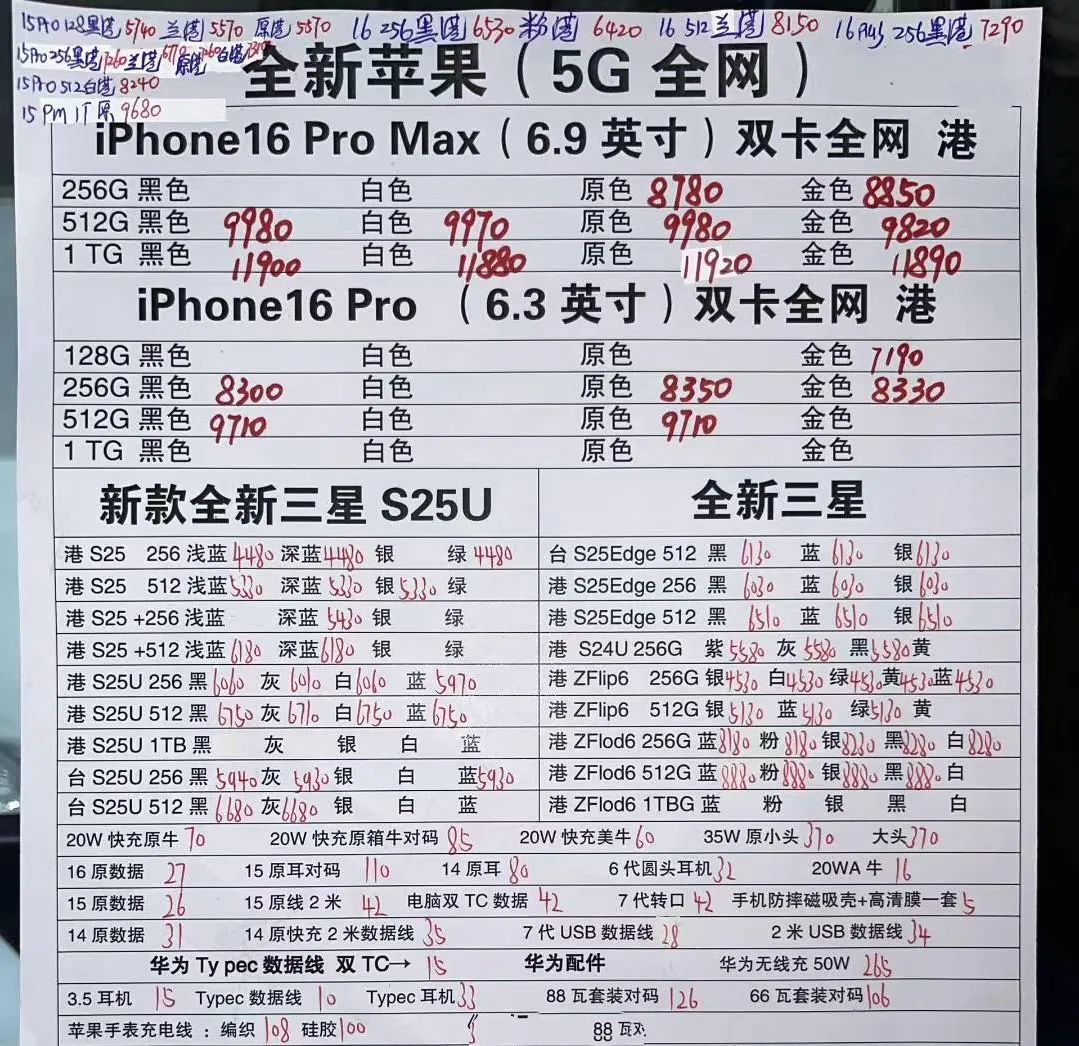 15Pro 128黑港5740 兰港5570 原港5670 16 256黑港6530 粉港 6420 16 512兰港8150 16Plus 256黑港7290
15Pro 256黑港 兰港 原港 白港
15Pro 512白港8240
15 Pm 1T原9680
全新苹果（5G 全网）
iPhone16 Pro Max（6.9 英寸）双卡全网 港
256G 黑色 白色 原色 8780 金色 8850
512G 黑色 9980 白色 9970 原色 9980 金色 9820
1 TG 黑色 11900 白色 11880 原色 11920 金色 11890
iPhone16 Pro （6.3 英寸）双卡全网 港
128G 黑色 白色 原色 金色 7190
256G 黑色 8300 白色 原色 8350 金色 8330
512G 黑色 9710 白色 原色 9710 金色
1 TG 黑色 白色 原色 金色
新款全新三星 S25U
港 S25 256 浅蓝 4480 深蓝 4480 银 绿 4480
港 S25 512 浅蓝 5330 深蓝 5330 银 5330 绿
港 S25 +256 浅蓝 深蓝 5430 银 绿
港 S25 +512 浅蓝 6180 深蓝 6180 银 绿
港 S25U 256 黑 6060 灰 6010 白 6060 蓝 5970
港 S25U 512 黑 6750 灰 6710 白 6750 蓝 6750
港 S25U 1TB 黑 灰 银 白 蓝
台 S25U 256 黑 5940 灰 5930 银 白 蓝 5930
台 S25U 512 黑 6680 灰 6680 银 白 蓝
全新三星
台 S25Edge 512 黑 6130 蓝 6130 银 6130
港 S25Edge 256 黑 6030 蓝 6030 银 6030
港 S25Edge 512 黑 6510 蓝 6510 银 6510
港 S24U 256G 紫 5580 灰 5580 黑 5580 黄
港 ZFlip6 256G 银 4530 白 4530 绿 4530 黄 4530 蓝 4530
港 ZFlip6 512G 银 5130 蓝 5130 绿 5130 黄
港 ZFlod6 256G 蓝 8180 粉 8180 银 8230 黑 8280 白 8280
港 ZFlod6 512G 蓝 8880 粉 8880 银 8880 黑 8880 白
港 ZFlod6 1TBG 蓝 粉 银 黑 白
20W 快充原牛 70 20W 快充原箱牛对码 85 20W 快充美牛 60 35W 原小头 370 大头 370
16 原数据 27 15 原耳对码 110 14 原耳 80 6 代圆头耳机 32 20WA 牛 16
15 原数据 26 15 原线 2 米 42 电脑双 TC 数据 42 7 代转口 42 手机防摔磁吸壳+高清膜一套 5
14 原数据 31 14 原快充 2 米数据线 35 7 代 USB 数据线 28 2 米 USB 数据线 34
华为 Ty pec 数据线 双 TC→ 15 华为配件 华为无线充 50W 265
3.5 耳机 15 Typec 数据线 10 Typec 耳机 33 88 瓦套装对码 126 66 瓦套装对码 106
苹果手表充电线 : 编织 108 硅胶 100 88 瓦